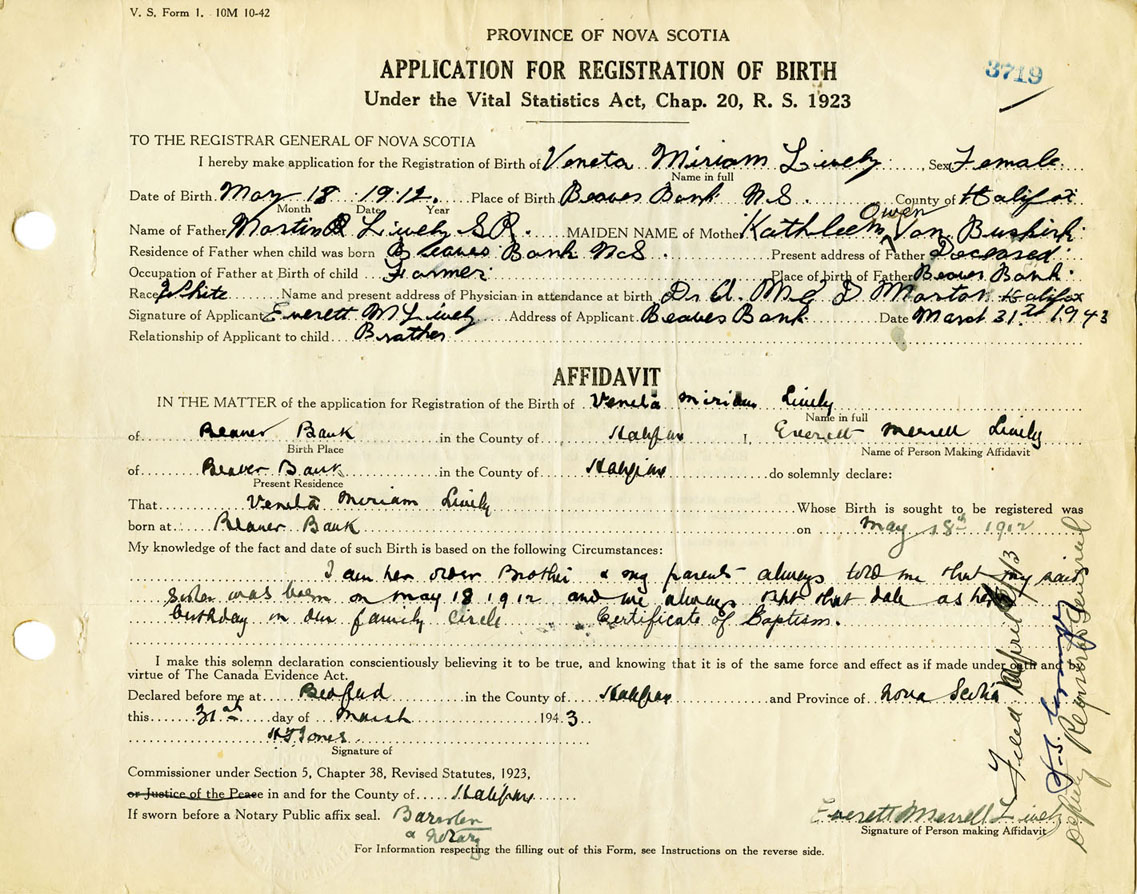 V. S. Form 1. 10M 10-42
PROVINCE OF NOVA SCOTIA
APPLICATION FOR REGISTRATION OF BIRTH
3719
Under the Vital Statistics Act, Chap. 20, R. S. 1923
TO THE REGISTRAR GENERAL OF NOVA SCOTIA
I hereby make application for the Registration of Birth of Veneta Miriam Lively, Sex Female
Name in full
Date of Birth May 18 1912. Place of Birth Beaver Bank N S. County of Halifax
Month Date Year
Owen
Name of Father Martin R Lively SR. MAIDEN NAME of Mother Kathleen Van Buskirk
Residence of Father when child was born Beaver Bank N S. Present address of Father Deceased
Occupation of Father at Birth of child Farmer Place of birth of Father Beaver Bank.
Race White Name and present address of Physician in attendance at birth Dr A. Mc D Morton Halifax
Signature of Applicant Everett M Lively Address of Applicant Beaver Bank Date March 31st 1943
Relationship of Applicant to child Brother
AFFIDAVIT
IN THE MATTER of the application for Registration of the Birth of Veneta Miriam Lively
Name in full
of Beaver Bank in the County of Halifax I, Everett Merrell Lively
Birth Place Name of Person Making Affidavit
of Beaver Bank in the County of Halifax do solemnly declare:
Present Residence
That Veneta Miriam Lively Whose Birth is sought to be registered was
born at Beaver Bank on May 18th 1912
My knowledge of the fact and date of such Birth is based on the following Circumstances:
I am her older Brother & my parents always told me that my said
sister was born on May 18 1912 and we always kept that date as her
birthday in our family circle Certificate of Baptism.
I make this solemn declaration conscientiously believing it to be true, and knowing that it is of the same force and effect as if made under oath and by
virtue of The Canada Evidence Act.
Declared before me at Bedford in the County of Halifax and Province of Nova Scotia
this 31st day of March 1943
Jones
Signature of
Commissioner under Section 5, Chapter 38, Revised Statutes, 1923,
or Justice of the Peace in and for the County of Halifax
If sworn before a Notary Public affix seal. Barister
& Notary
Everett Merrell Lively
Signature of Person making Affidavit
For Information respecting the filling out of this Form, see Instructions on the reverse side.
Filed April 43
Deputy Registrar General